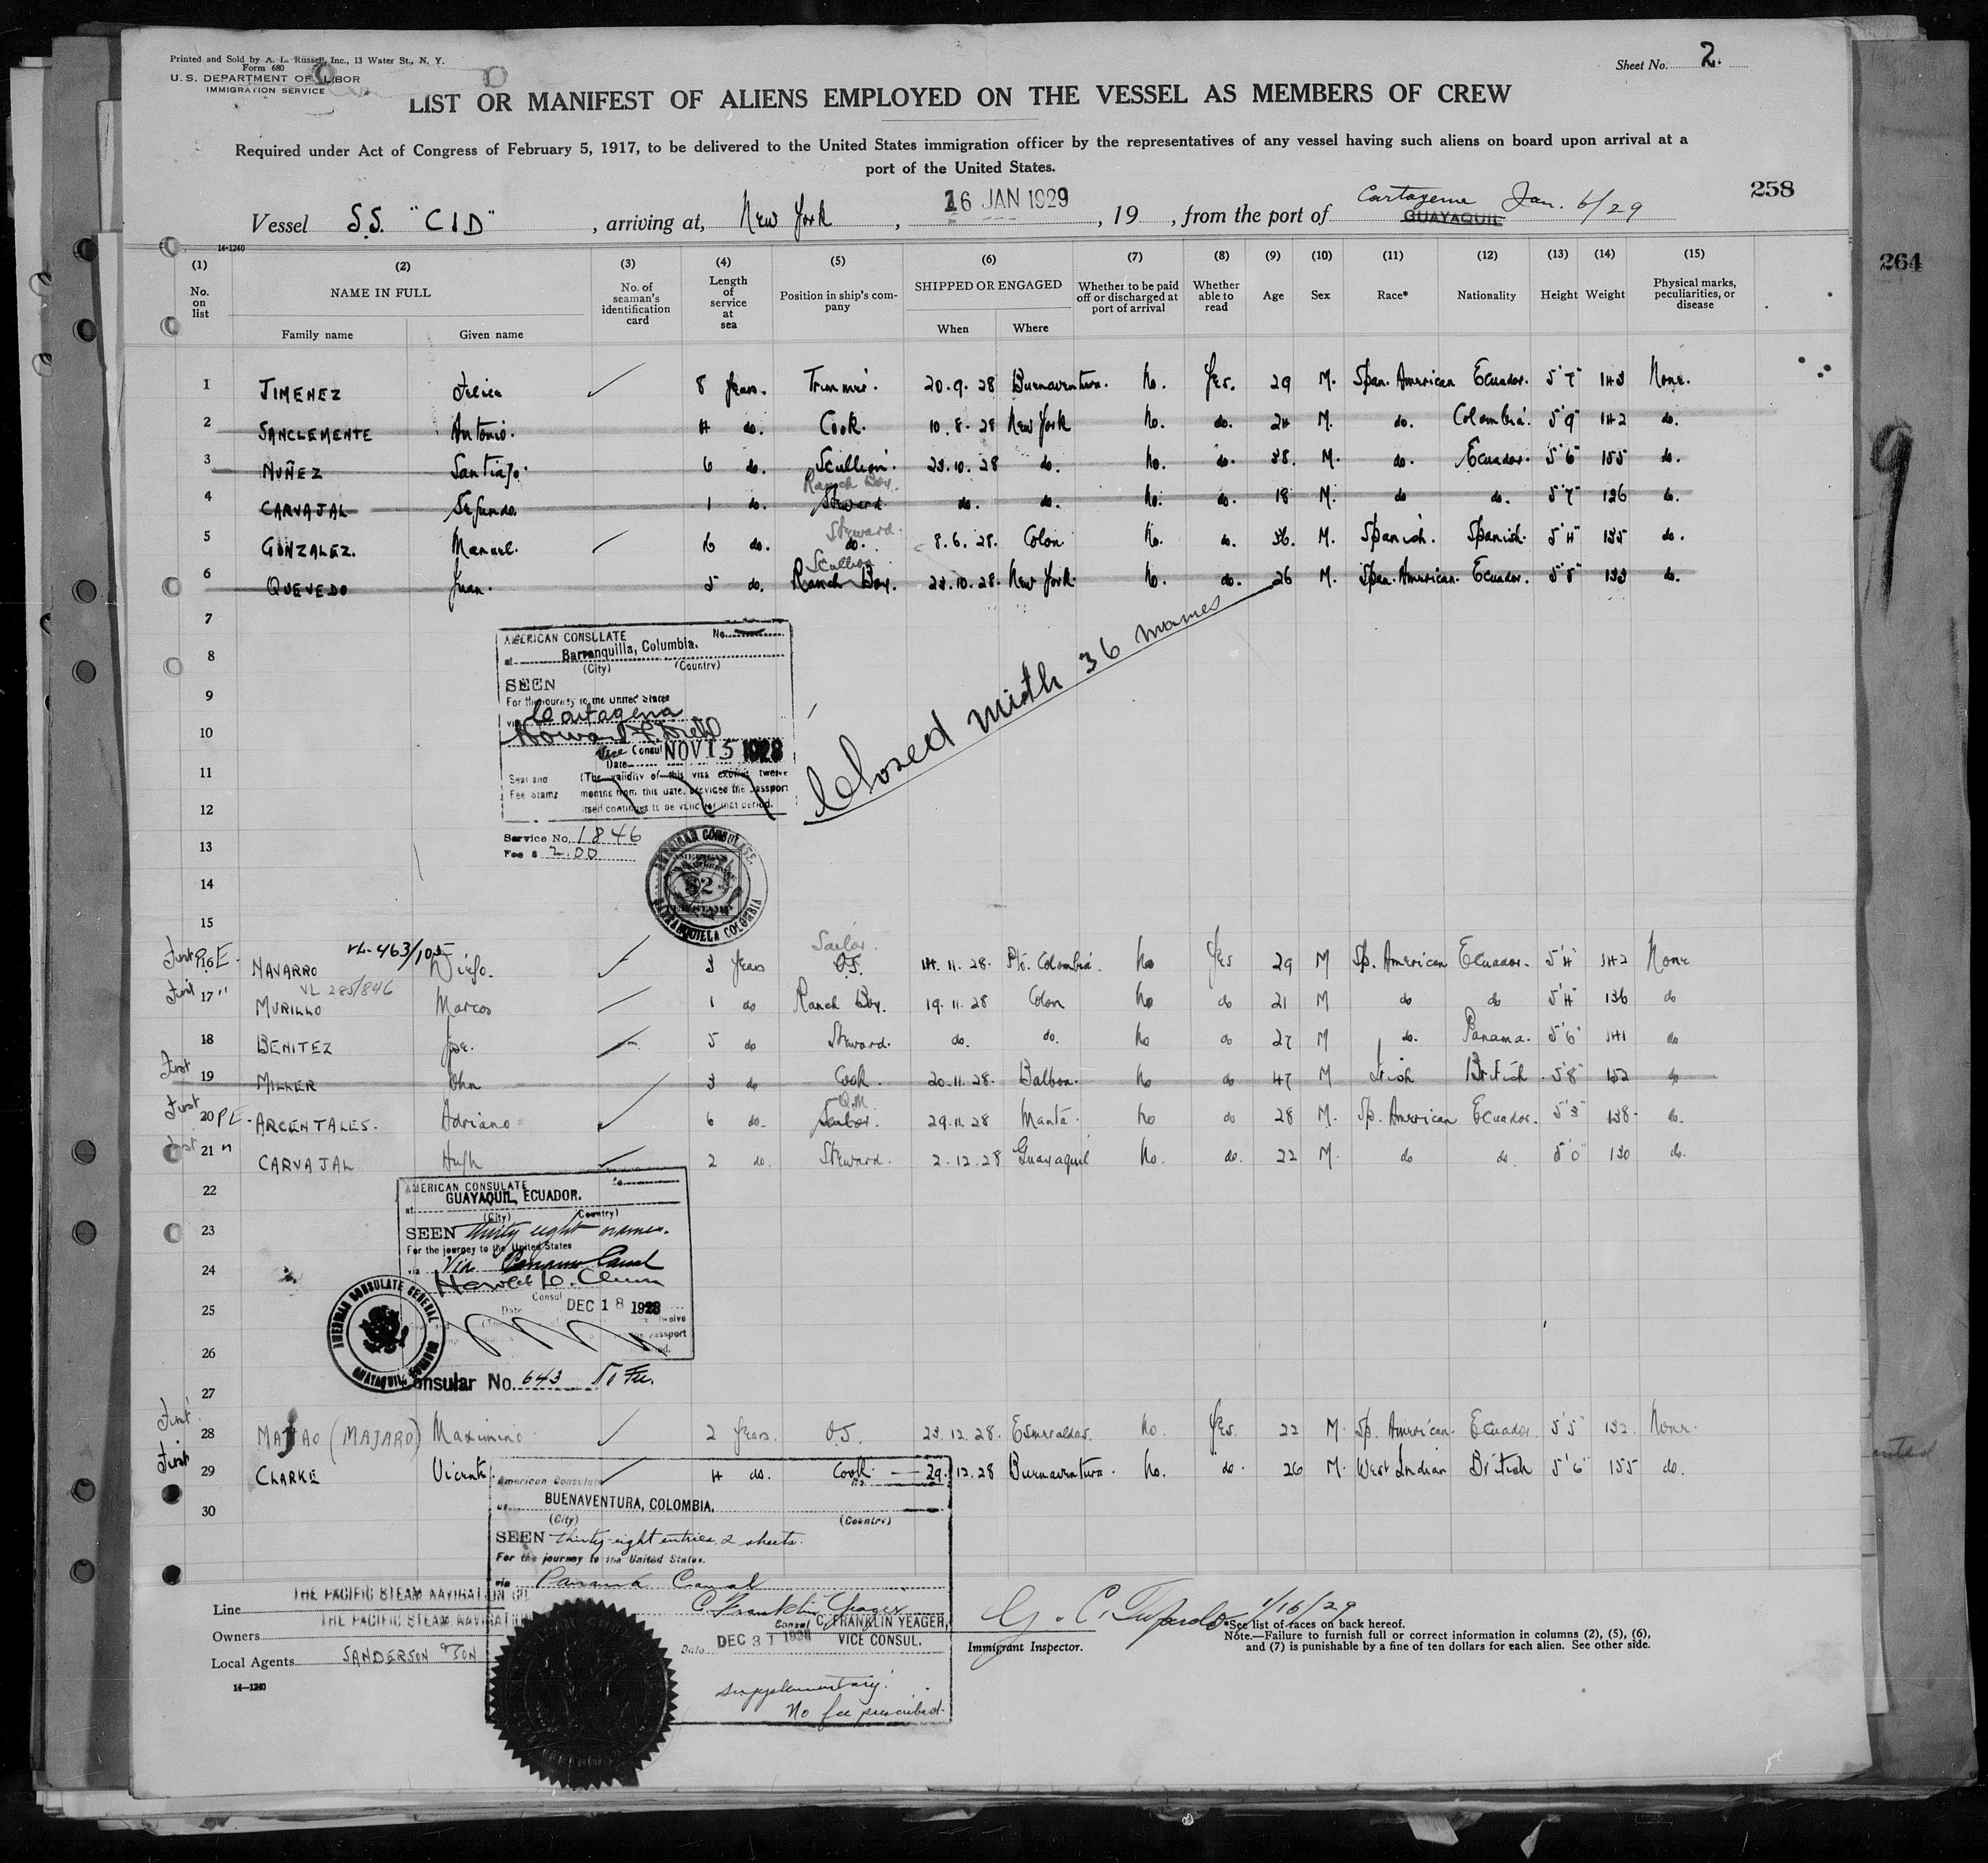 Printed and Sold by A. L. Russell, Inc., 13 Water St., N. Y.
Form 680
U. S. DEPARTMENT OF LABOR
IMMIGRATION SERVICE
Sheet No. 2.
LIST OR MANIFEST OF ALIENS EMPLOYED ON THE VESSEL AS MEMBERS OF CREW
Required under Act of Congress of February 5, 1917, to be delivered to the United States immigration officer by the representatives of any vessel having such aliens on board upon arrival at a
port of the United States.
258
264
9
Vessel S.S. "CID", arriving at, New York, 16 JAN 1929, 19, from the port of Cartagena GUAYAQUIL Jan. 6/29
14-1240
(1) (2) (3) (4) (5) (6) (7) (8) (9) (10) (11) (12) (13) (14) (15)
No. on list NAME IN FULL No. of seaman's identification card Length of service at sea Position in ship's company SHIPPED OR ENGAGED Whether to be paid off or discharged at port of arrival Whether able to read Age Sex Race* Nationality Height Weight Physical marks, peculiarities, or disease
Family name Given name When Where
1 JIMENEZ 8 Years. Trimmer. 20.9.28 Buenaventura. No. Yes. 29 M. Span. American Ecuador. 5'7" 143 None.
2 SANCLEMENTE Antonio. 4 do. Cook. 10.8.28 New York No. do. 24 M. do. Colombia. 5'9" 142 do.
3 NUÑEZ Santiago. 6 do. Scullion. 23.10.28 do. No. do. 38. M. do. Ecuador. 5'6" 155 do.
Ranch Boy.
4 CARVAJAL Segundo. 1 do. Steward do. do. No. do. 18 M. do do. 5'7" 126 do.
Steward.
5 GONZALEZ. Manuel. 16 do. do. 8.6.28. Colon No. do. 36. M. Spanish. Spanish. 5'4" 135 do.
Scullion
6 QUEVEDO Juan. 5 do. Ranch Boy. 23.10.28. New York. No. do. 26 M. Span. American. Ecuador. 5'8" 133 do.
7
8
9
10
11
12
13
14
15
AMERICAN CONSULATE No.
at Barranquilla, Columbia.
(City) (Country)
SEEN
For the journey to the United States
via Cartagena
Vice Consul
Date NOV 15 1928
Seal and Fee Stamp
(The validity of this visa expires twelve
months from this date, provided the passport
itself continues to be valid for that period.
Service No. 1846
Fee $ 2.00
AMERICAN CONSULATE.
$2
BARRANQUILLA COLOMBIA
Closed with 36 names
First P.E. VL-463/105 Sailor.
16 NAVARRO Diego. 3 Years O.S. 14.11.28. P/o. Colombia. No Yes 29 M Sp. American Ecuador. 5'4" 142 None
VL 285/846
First 17 " MURILLO Marcos 1 do Ranch Boy. 19.11.28 Colon No do 21 M do do 5'4" 136 do
18 BENITEZ Jose. 5 do Steward. do. do. No do 27 M do. Panama. 5'6" 141 do
First 19 MILLER John 3 do Cook. 20.11.28. Balboa. No do 47 M Irish British 5'8" 152 do
Q.M.
First 20 PE - ARCENTALES. Adriano 6 do. Sailor. 29.11.28 Manta. No do 28 M. Sp. American Ecuador. 5'3" 138. do.
First 21 " CARVAJAL Hugh 2 do. Steward. 2.12.28 Guayaquil No. do. 22 M. do do. 5'0" 130 do.
22
23
24
25
26
27
AMERICAN CONSULATE
at GUAYAQUIL, ECUADOR.
(City) (Country)
SEEN thirty eight names.
For the journey to the United States
via Via Panama Canal
Consul
Date DEC 18 1928
twelve
passport
AMERICAN CONSULATE GENERAL
GUAYAQUIL
Consular No. 643 No Fee.
First 28 MAJAO (MAJARO) Maximino 2 Years. O.S. 23.12.28. Esmeraldas. No. Yes. 22 M. Sp. American. Ecuador 5'5" 132. None.
First 29 CLARKE Vicente. 4 do. Cook. 29.12.28 Buenaventura. No. do. 26 M. West Indian British 5'6" 155 do.
30
American Consulate
at BUENAVENTURA, COLOMBIA.
(City) (Country)
SEEN thirty-eight entries, 2 sheets.
For the journey to the United States.
via Panama Canal
C. Franklin Yeager
Consul C. FRANKLIN YEAGER,
Date DEC 31 1928 VICE CONSUL.
supplementary.
No fee prescribed.
Line THE PACIFIC STEAM NAVIGATION CO.
Owners THE PACIFIC STEAM NAVIGATION
Local Agents SANDERSON & SON
14-1240
1/16/29
Immigrant Inspector.
*See list of races on back hereof.
Note.—Failure to furnish full or correct information in columns (2), (5), (6),
and (7) is punishable by a fine of ten dollars for each alien. See other side.